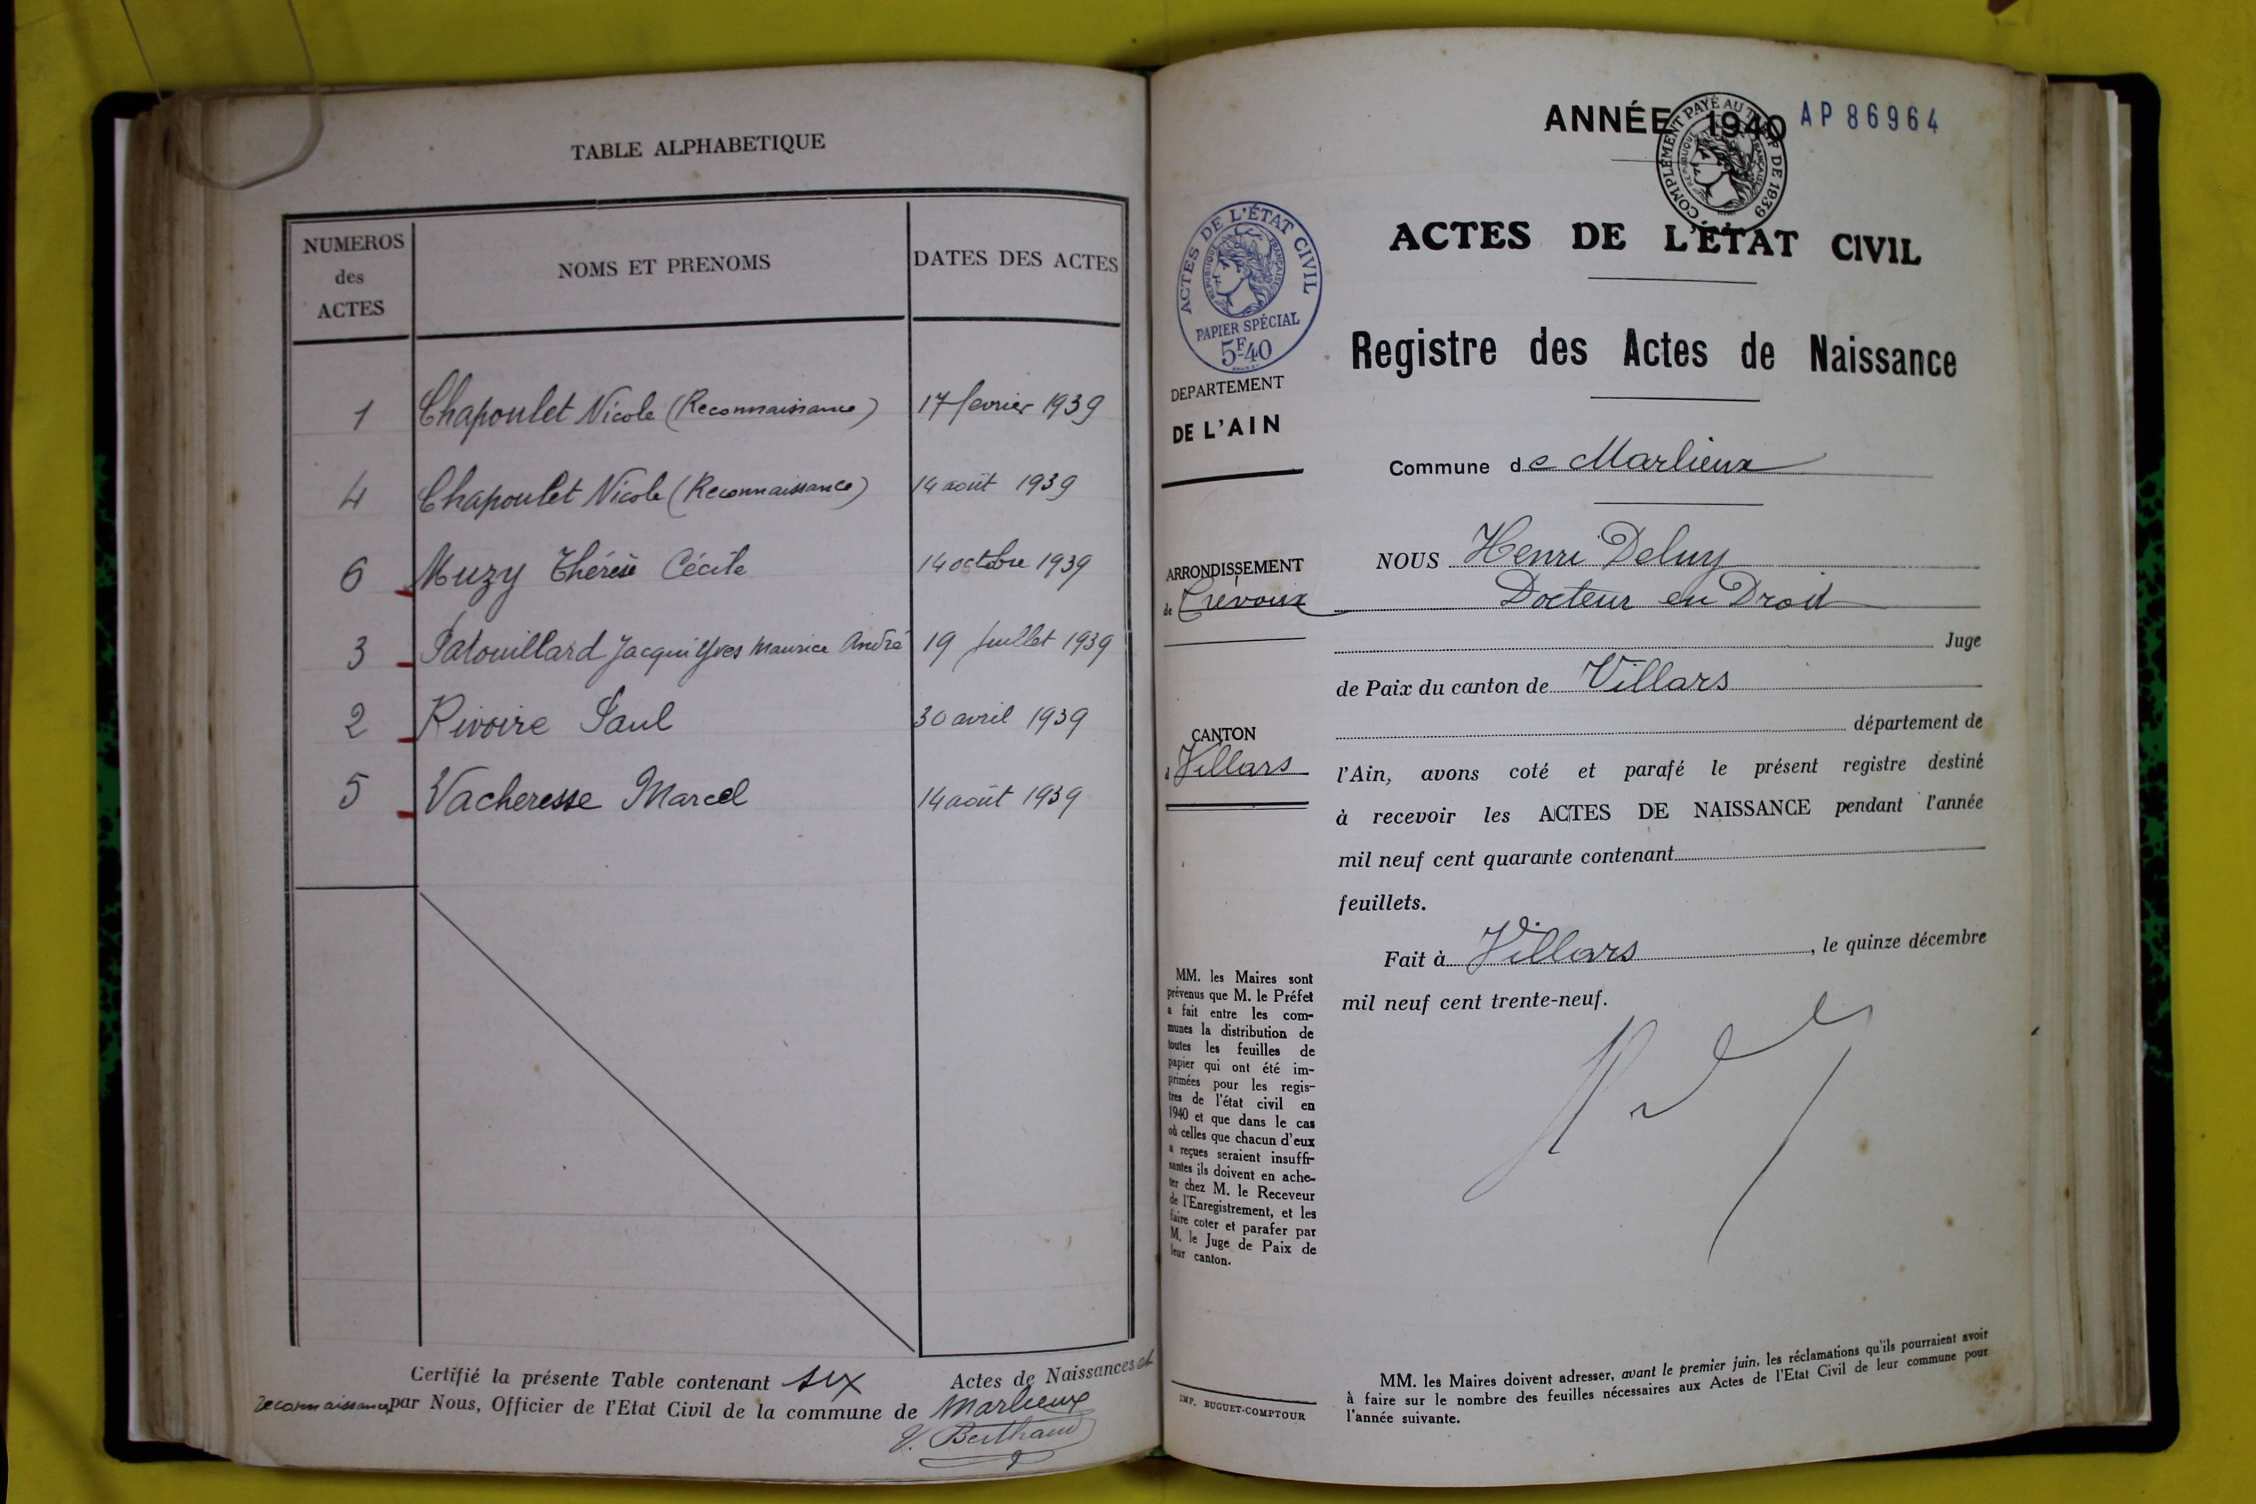 TABLE ALPHABETIQUE
NUMEROS des ACTES
NOMS ET PRENOMS
DATES DES ACTES
1 Chapoulet Nicole (Reconnaissance) 17 fevrier 1939
4 Chapoulet Nicole (Reconnaissance) 14 août 1939
6 Muzy Thérèse Cécile 14 octobre 1939
3 Patouillard Jacqui Yves Maurice André 19 Juillet 1939
2 Rivoire Paul 30 avril 1939
5 Vacheresse Marcel 14 août 1939
Certifié la présente Table contenant six Actes de Naissances et
reconnaissances par Nous, Officier de l'Etat Civil de la commune de Marlieux
V. Berthaud
ANNÉE 1940 AP 86964
COMPLÉMENT PAYÉ AU TARIF DE 1939
REPUBLIQUE FRANÇAISE
ACTES DE L'ÉTAT CIVIL
REPUBLIQUE FRANÇAISE
PAPIER SPÉCIAL
5F40
ACTES DE L'ÉTAT CIVIL
Registre des Actes de Naissance
DEPARTEMENT
DE L'AIN
Commune de Marlieux
ARRONDISSEMENT
de Trévoux
CANTON
d Villars
NOUS Henri Deluy
Docteur en Droit
Juge
de Paix du canton de Villars
département de
l'Ain, avons coté et parafé le présent registre destiné
à recevoir les ACTES DE NAISSANCE pendant l'année
mil neuf cent quarante contenant
feuillets.
Fait à Villars, le quinze décembre
mil neuf cent trente-neuf.
MM. les Maires sont
prévenus que M. le Préfet
a fait entre les com-
munes la distribution de
toutes les feuilles de
papier qui ont été im-
primées pour les regis-
tres de l'état civil en
1940 et que dans le cas
où celles que chacun d'eux
a reçues seraient insuffi-
santes ils doivent en ache-
ter chez M. le Receveur
de l'Enregistrement, et les
faire coter et parafer par
M. le Juge de Paix de
leur canton.
IMP. BUGUET-COMPTOUR
MM. les Maires doivent adresser, avant le premier juin, les réclamations qu'ils pourraient avoir
à faire sur le nombre des feuilles nécessaires aux Actes de l'Etat Civil de leur commune pour
l'année suivante.